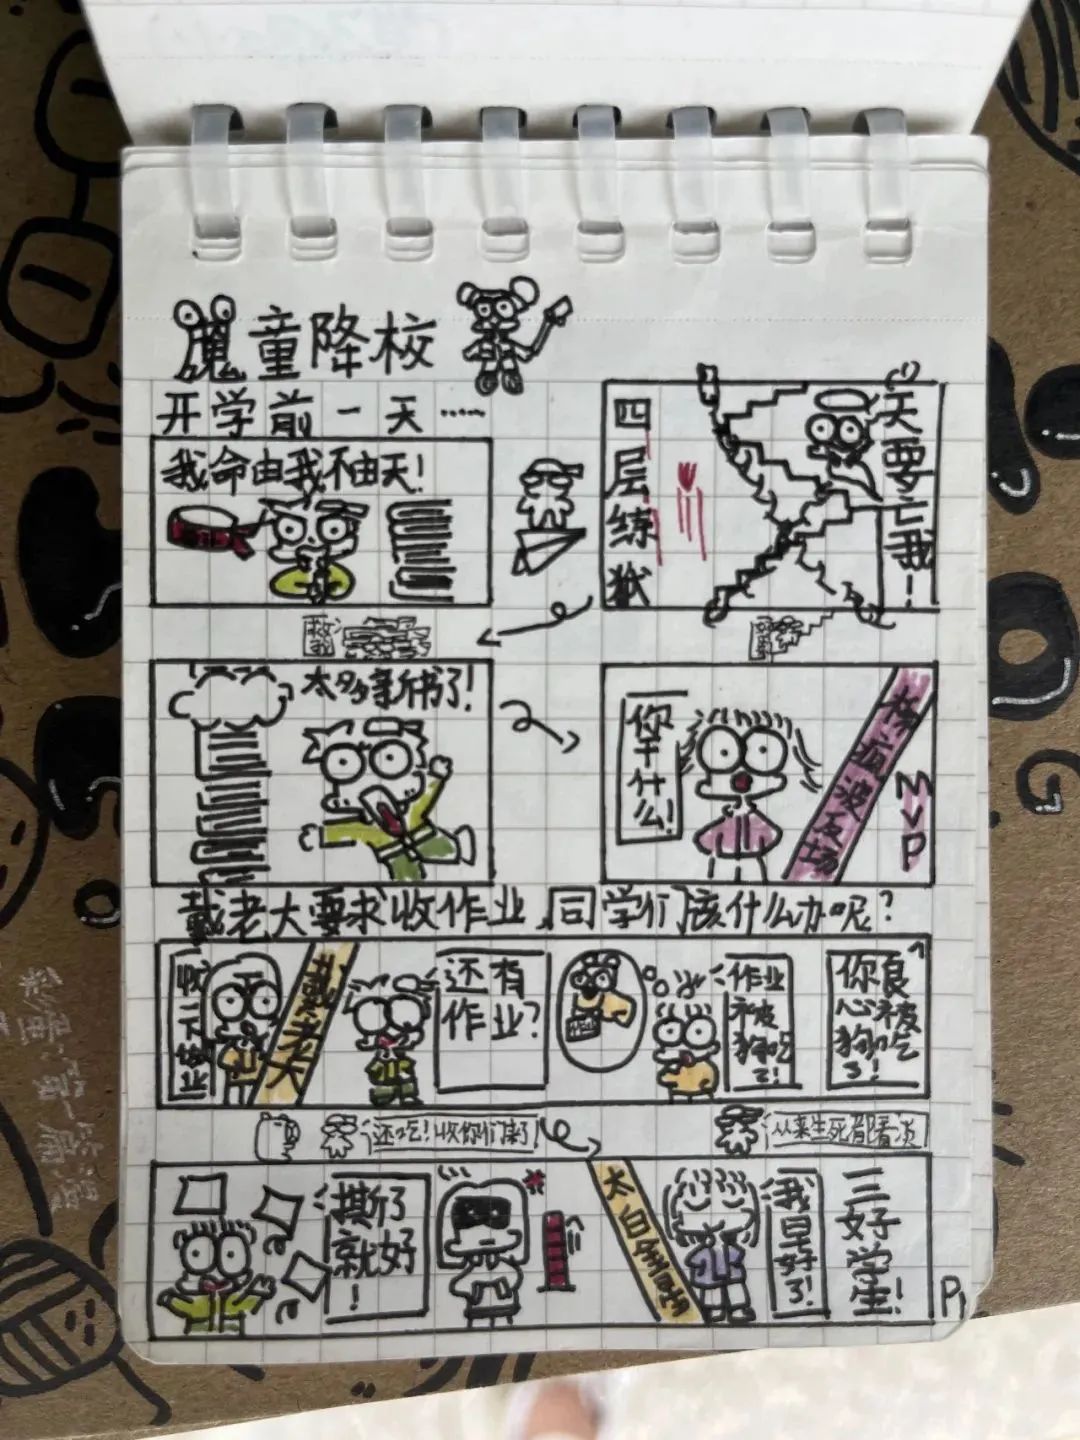 魔童降校
开学前一天……
我命由我不由天！
四层练狱
天要亡我！
太多新书了！
你干什么！
MVP
戴老大要求收作业，同学们该什么办呢？
戴老大
还有作业？
作业被狗吃了！
你良心被狗吃了！
还吃！收你们来了
从来生死都看淡
撕了就好！
太白金星
我早好了！
三好学生！
P1